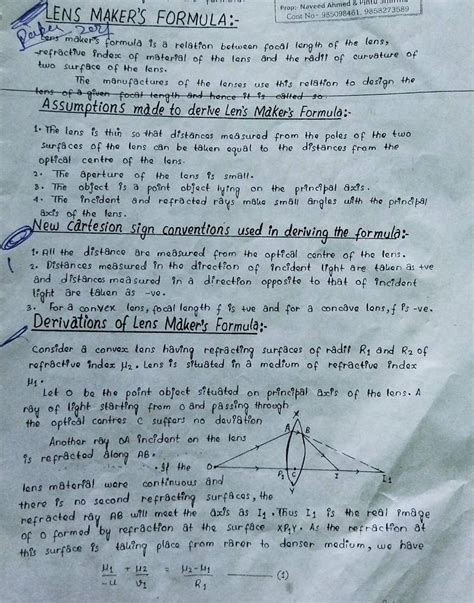 Prop: Naveed Ahmed & Pintu Sharma
Cont No:- 985098461, 9858273589
LENS MAKER'S FORMULA:-
Paper - 2021
Lens maker's formula is a relation between focal length of the lens,
refractive index of material of the lens and the radii of curvature of
two surface of the lens.
The manufactures of the lenses use this relation to design the
lens of a given focal length and hence it is called so.
Assumptions made to derive Len's Maker's Formula:-
1. The lens is thin so that distances measured from the poles of the two
surfaces of the lens can be taken equal to the distances from the
optical centre of the lens.
2. The aperture of the lens is small.
3. The object is a point object lying on the principal axis.
4. The incident and refracted rays make small angles with the principal
axis of the lens.
New cartesion sign conventions used in deriving the formula:-
1. All the distance are measured from the optical centre of the lens.
2. Distances measured in the direction of incident light are taken as +ve
and distances measured in a direction opposite to that of incident
light are taken as -ve.
3. For a convex lens, focal length f is +ve and for a concave lens, f is -ve.
Derivations of Lens Maker's Formula:-
Consider a convex lens having refracting surfaces of radii R1 and R2 of
refractive index μ2. Lens is situated in a medium of refractive index
μ1.
Let O be the point object situated on principal axis of the lens. A
ray of light starting from O and passing through
the optical centres C suffers no deviation
Another ray OA incident on the lens
is refracted along AB.
If the
lens material were continuous and
there is no second refracting surfaces, the
refracted ray AB will meet the axis as I1. Thus I1 is the real image
of O formed by refraction at the surface XP1Y. As the refraction at
this surface is taking place from rarer to denser medium, we have
μ1/-u + μ2/v1 = μ2-μ1/R1 ——— (1)
X
A
B
O
P1
C
I
I1
Y